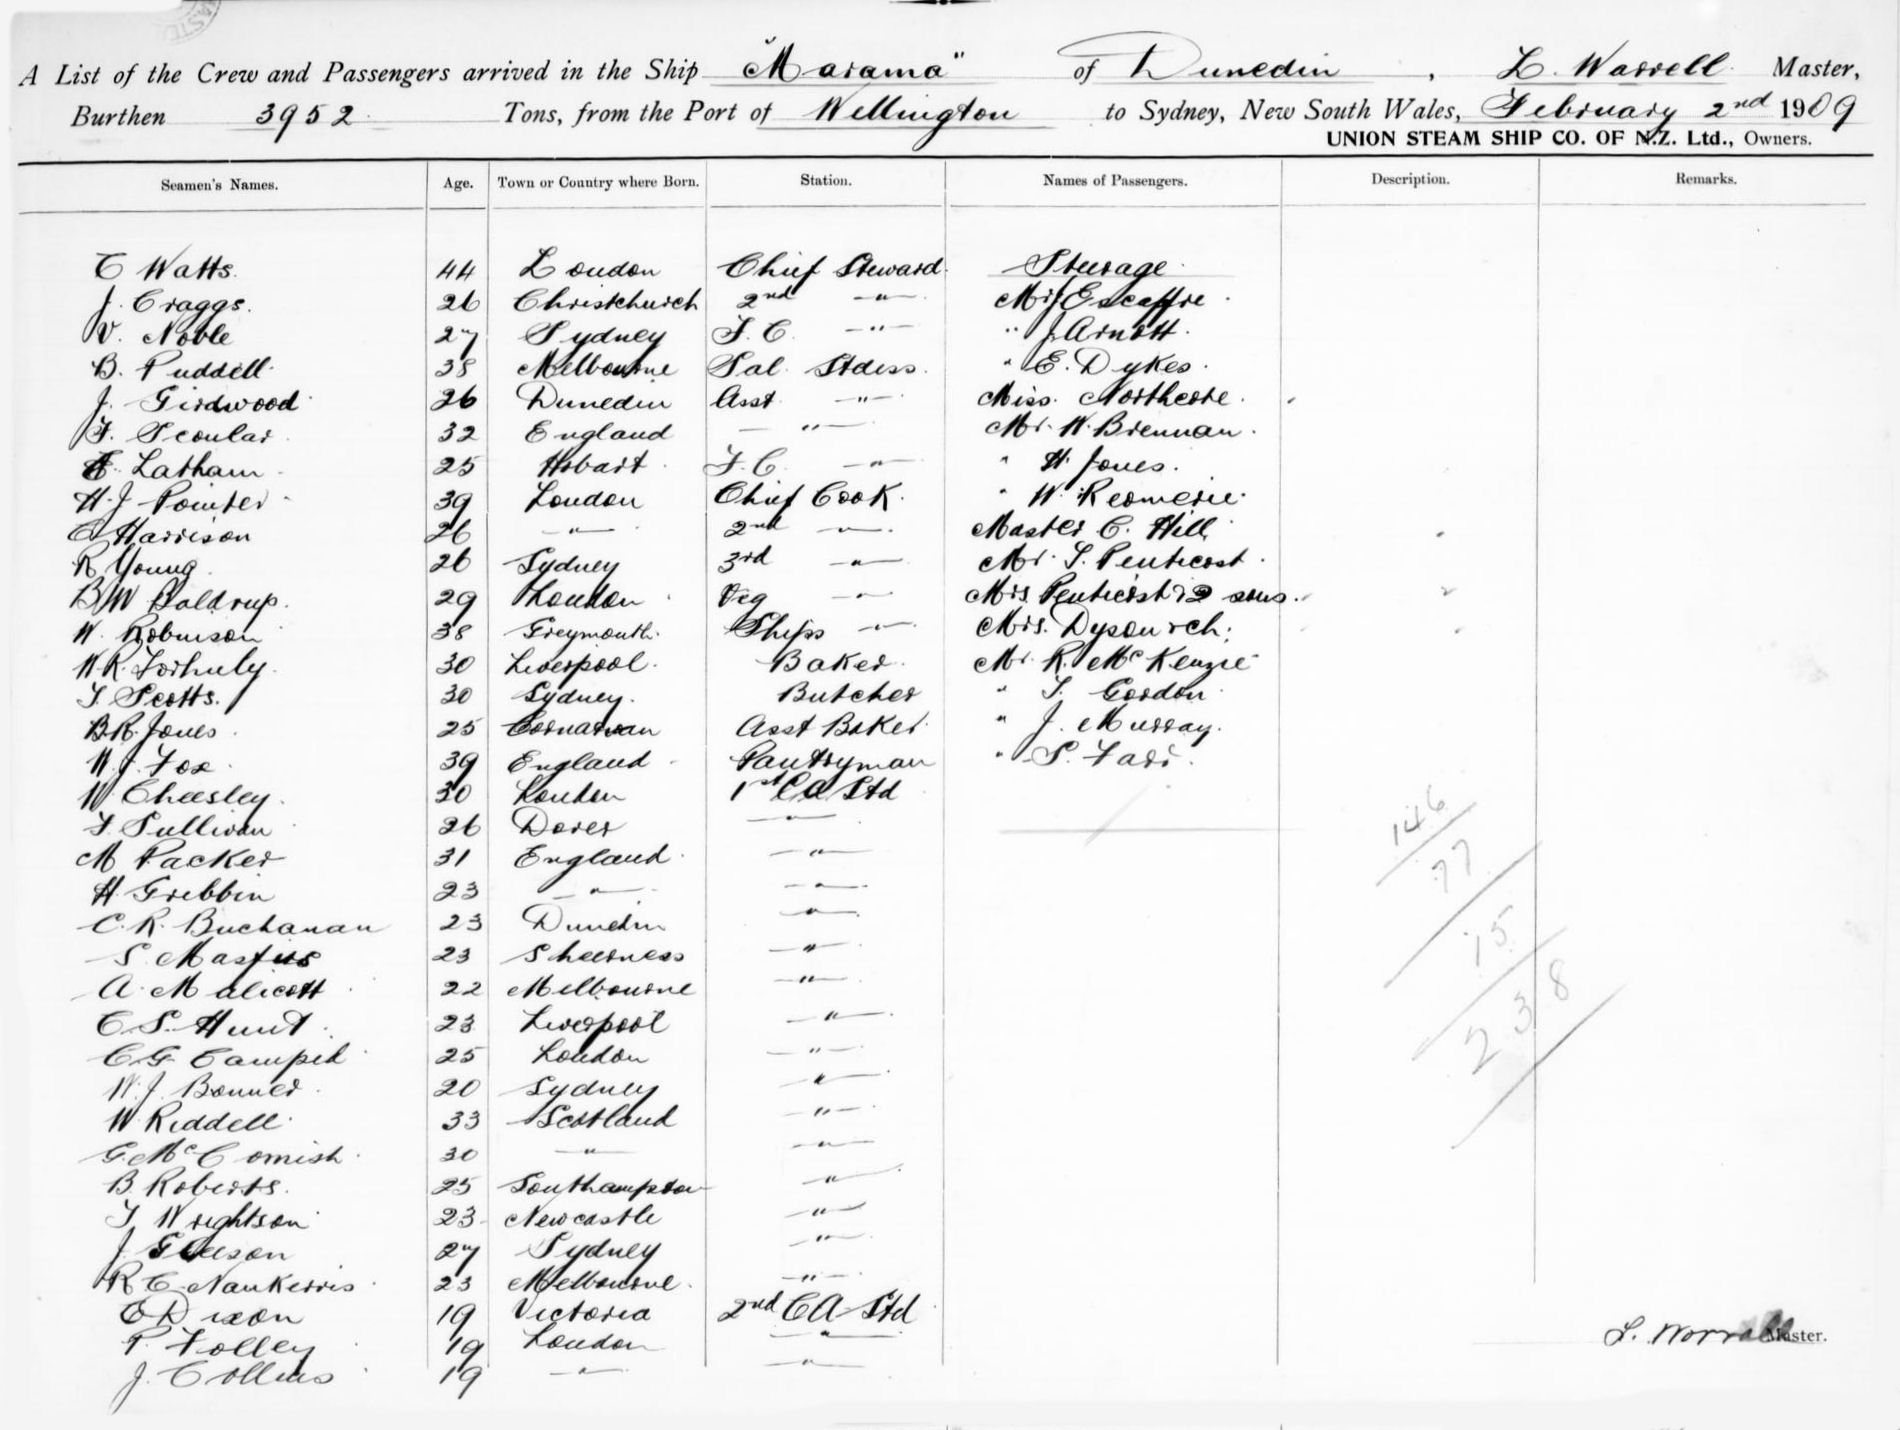 A List of the Crew and Passengers arrived in the Ship "Marama" of Dunedin, L. Worrell Master,
Burthen 3952 Tons, from the Port of Wellington to Sydney, New South Wales, February 2nd 1909
UNION STEAM SHIP CO. OF N.Z. Ltd., Owners.
Seamen's Names. Age. Town or Country where Born. Station. Names of Passengers. Description. Remarks.
C Watts. 44 London Chief Steward Steerage
J. Craggs. 26 Christchurch 2nd -"- Mr J Escaffre
V. Noble 27 Sydney F.C. -"- " J. Arnott.
B. Puddell. 38 Melbourne Sal. Stdess. " E. Dykes.
J. Girdwood 26 Dunedin Asst -"- Miss. Northcote.
F. Scoular 32 England -"- Mr. W. Brennan.
Latham 25 Hobart F.C. -"- " H. Jones.
H.J. Pointer 39 London Chief Cook. " W.
C Harrison 26 -"- 2nd -"- Master C. Hill.
R Young 26 Sydney 3rd -"- Mr. S. Penticost.
B W Baldrup. 29 London Veg -"- Mrs. Penticost & 2 sons.
W. Robinson 38 Greymouth. Ships -"- Mrs. Dyson & ch.
W R. 30 Liverpool. Baker Mr. R. McKenzie
T. Scotts. 30 Sydney. Butcher " T. Gordon
B.R. Jones. 25 Carnarvan Asst Baker " J. Murray.
W. J. Fox. 39 England Pantryman " S. Farr.
W Cheesley. 30 London 1st Cl Std
F. Sullivan 26 Dover -"-
M Packer 31 England -"- 146
H. Gribbin 23 -"- -"- 77
C. R. Buchanan 23 Dunedin -"- 15
S. 23 Sheerness -"-
A. Malicott 22 Melbourne -"- 238
C S. Hunt. 23 Liverpool -"-
C G 25 London -"-
W. J. Bonner 20 Sydney -"-
W Riddell. 33 Scotland -"-
G. McComish. 30 -"- -"-
B. Roberts. 25 Southampton -"-
T. Wrightson 23 Newcastle -"-
J. Gleeson 27 Sydney -"-
R C Nankervis 23 Melbourne -"-
C Dixon 19 Victoria 2nd Cl Std
P. Folley 19 London -"- L. Worrall Master.
J. Collins 19 -"- -"-